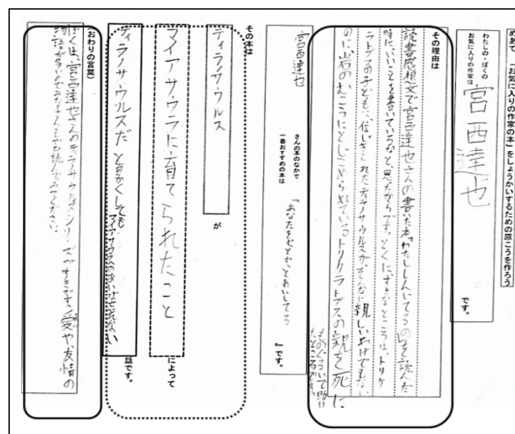 めあて 「お気に入りの作家の本」をしょうかいするための原こうを作ろう
わたしの・ぼくの
お気に入りの作家は
宮西達也
です。
その理由は
読書感想文で宮西達也さんの書いた本『わたししんじてるの』を読んだ
時に、いいことを書いているなと、思ったからです。とくに、すきなところは、トリケ
ラトプスの子どもに、信じきられたティラノサウルスが、そんなに親しいわけでもない
のに岩のむこうにとじこめられているトリケラトプスの親を死に
宮西達也
さんの本のなかで
一番おすすめの本は
『あなたをずっとずっとあいしてる
』です。
その本は
ティラノサウルス
が
マイアサウラに育てられたこと
によって
ティラノサウルスだと
話です。
おわりの言葉
ぼくは、宮西達也さんのティラノサウルスシリーズがすきです。愛や、友情の